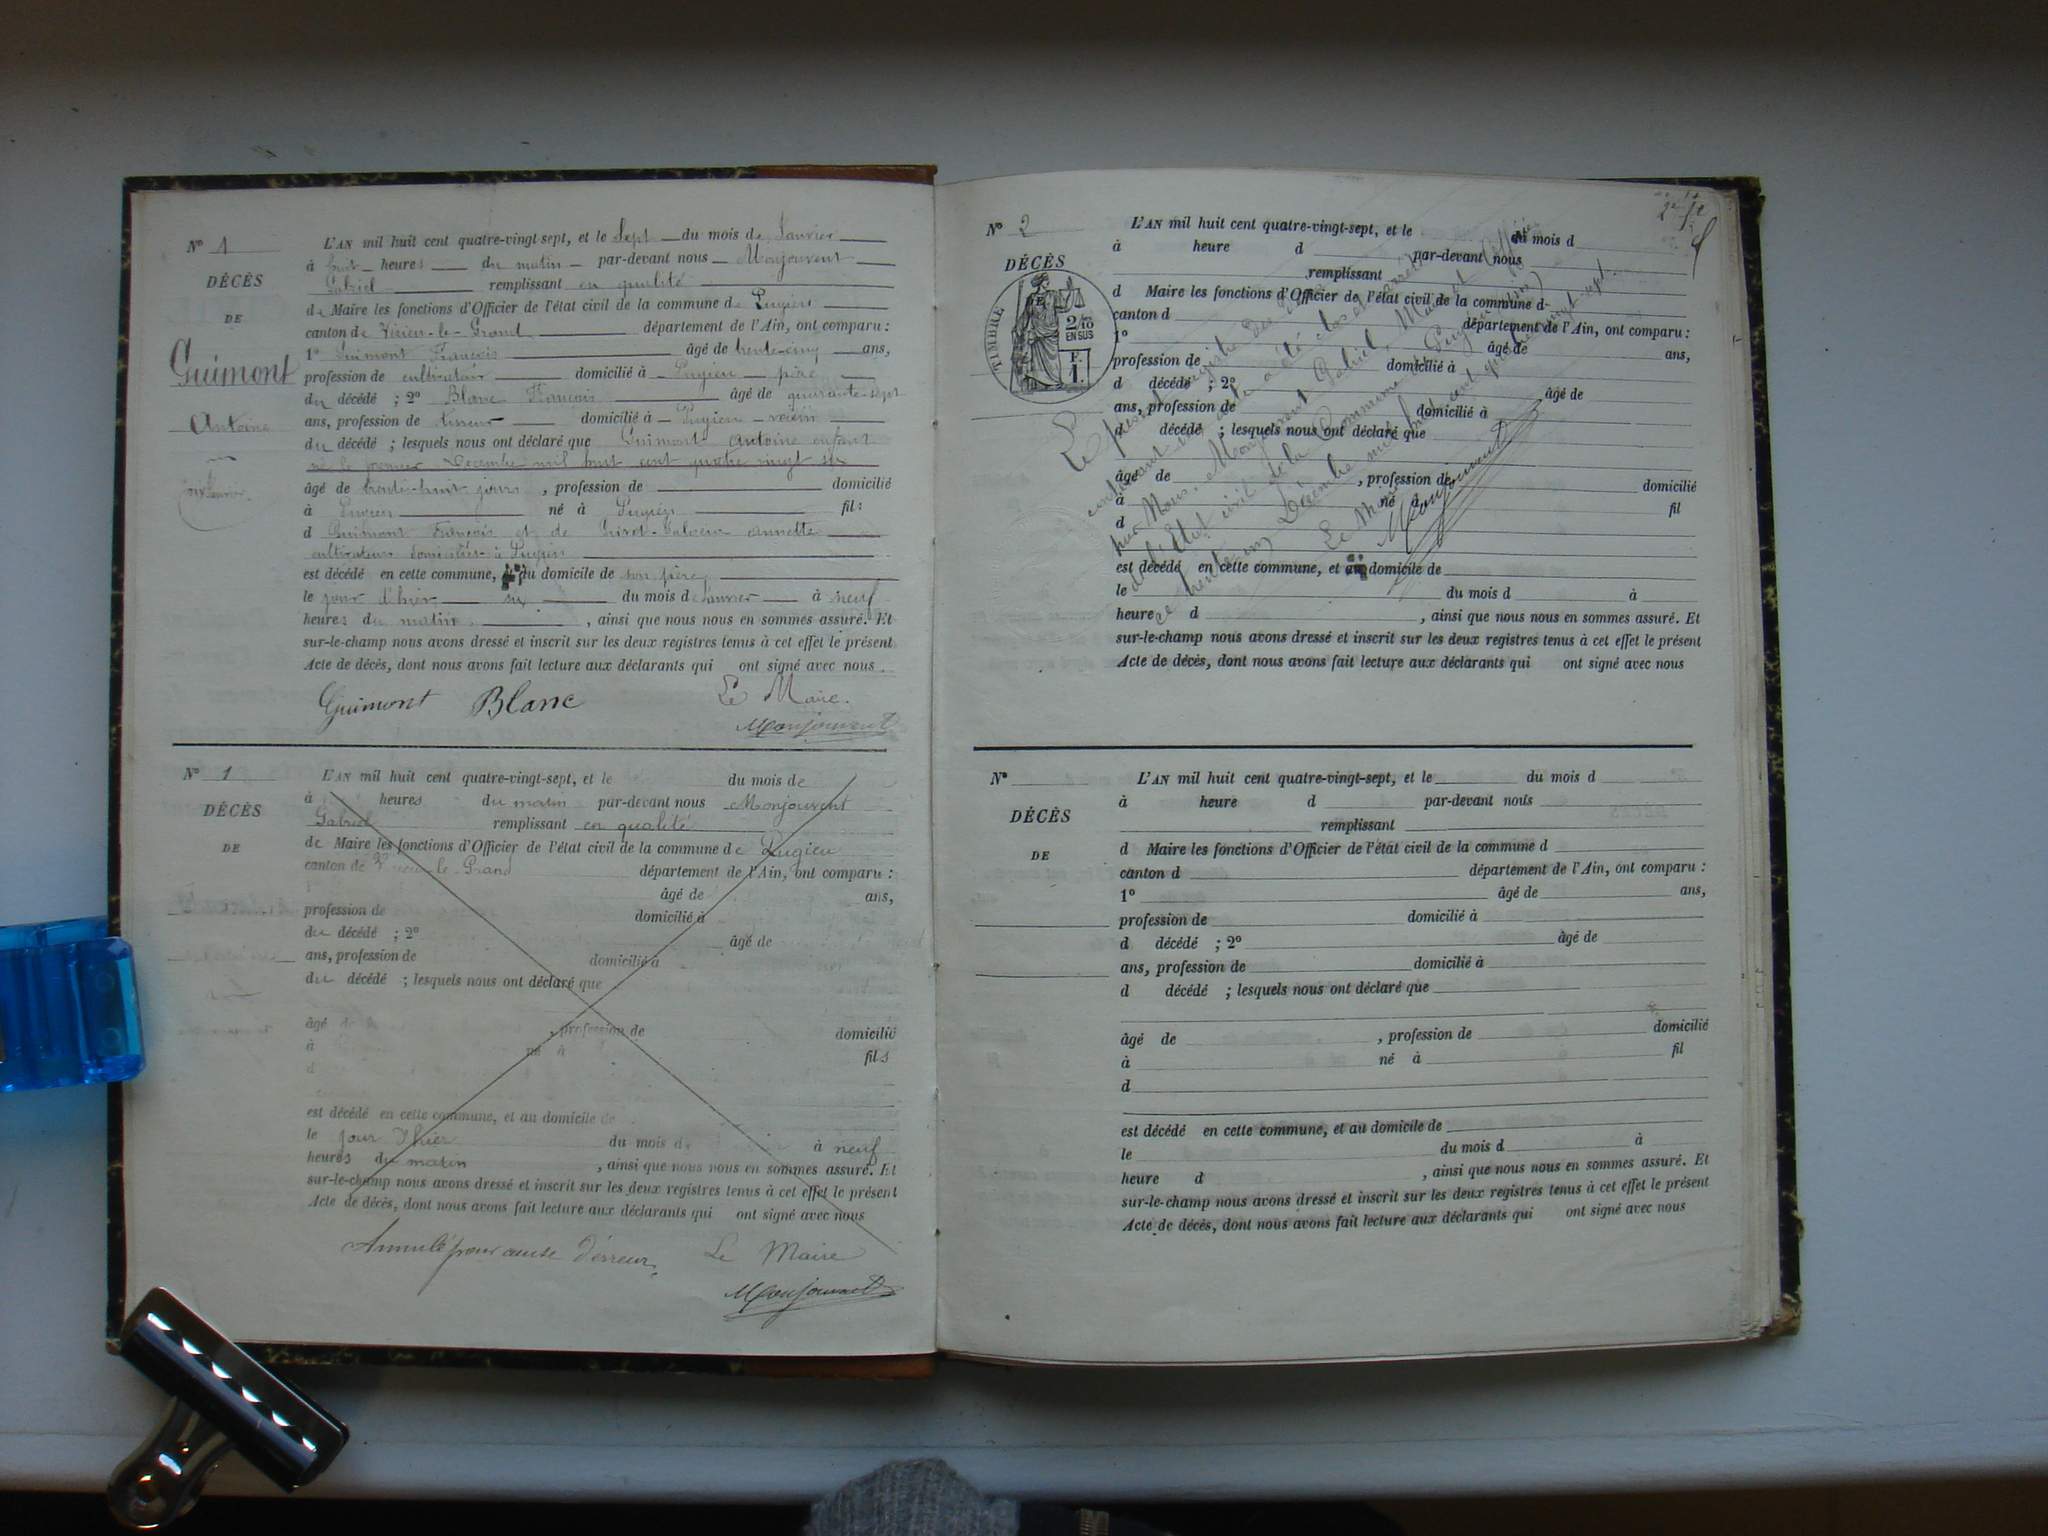 N° 1
DÉCÈS
DE
Guimont
Antoine
L'AN mil huit cent quatre-vingt-sept, et le Sept du mois de Janvier
à huit heures du matin par-devant nous Monjouvent
Gabriel remplissant en qualité
de Maire les fonctions d'Officier de l'état civil de la commune de Pugieu
canton de Virieu-le-Grand département de l'Ain, ont comparu :
1° Guimont François âgé de trente-cinq ans,
profession de cultivateur domicilié à Pugieu père
du décédé ; 2° Blanc François âgé de quarante-sept
ans, profession de domicilié à Pugieu voisin
du décédé ; lesquels nous ont déclaré que Guimont Antoine enfant
né le premier Decembre mil huit cent quatre vingt six
âgé de trente-huit jours , profession de domicilié
à Pugieu né à Pugieu fils
d Guimont François et de Annette
cultivateurs domiciliés à Pugieu
est décédé en cette commune, au domicile de son père
le jour d'hier six du mois de Janvier à neuf
heures du matin , ainsi que nous nous en sommes assuré. Et
sur-le-champ nous avons dressé et inscrit sur les deux registres tenus à cet effet le présent
Acte de décès, dont nous avons fait lecture aux déclarants qui ont signé avec nous.
Guimont Blanc Le Maire.
Monjouvent
N° 1
DÉCÈS
DE
L'AN mil huit cent quatre-vingt-sept, et le du mois de
à heures du matin par-devant nous Monjouvent
Gabriel remplissant en qualité
de Maire les fonctions d'Officier de l'état civil de la commune de Pugieu
canton de Virieu-le-Grand département de l'Ain, ont comparu :
âgé de ans,
profession de domicilié à
du décédé ; 2° âgé de
ans, profession de domicilié à
du décédé ; lesquels nous ont déclaré que
âgé de , profession de domicilié
à né à fils
d
est décédé en cette commune, et au domicile de
le jour d'hier du mois d à neuf
heures du matin , ainsi que nous nous en sommes assuré. Et
sur-le-champ nous avons dressé et inscrit sur les deux registres tenus à cet effet le présent
Acte de décès, dont nous avons fait lecture aux déclarants qui ont signé avec nous
Annulé pour cause d'erreur Le Maire
Monjouvent
N° 2
DÉCÈS
DE
TIMBRE
2/10
EN SUS
F.
1.
L'AN mil huit cent quatre-vingt-sept, et le du mois d
à heure d par-devant nous
remplissant
d Maire les fonctions d'Officier de l'état civil de la commune d
canton d département de l'Ain, ont comparu :
1° âgé de ans,
profession de domicilié à
d décédé ; 2° âgé de
ans, profession de domicilié à
d décédé ; lesquels nous ont déclaré que
âgé de , profession de domicilié
à né à fil
d
est décédé en cette commune, et au domicile de
le du mois d à
heure d , ainsi que nous nous en sommes assuré. Et
sur-le-champ nous avons dressé et inscrit sur les deux registres tenus à cet effet le présent
Acte de décès, dont nous avons fait lecture aux déclarants qui ont signé avec nous
Le présent registre des décès
contenant un acte a été clos et arrêté
par Nous, Monjouvent Gabriel, Maire et Officier
de l'Etat civil de la Commune de Pugieu (Ain)
ce trente un Décembre mil huit cent quatre vingt sept.
Le Maire
Monjouvent
N°
DÉCÈS
DE
L'AN mil huit cent quatre-vingt-sept, et le du mois d
à heure d par-devant nous
remplissant
d Maire les fonctions d'Officier de l'état civil de la commune d
canton d département de l'Ain, ont comparu :
1° âgé de ans,
profession de domicilié à
d décédé ; 2° âgé de
ans, profession de domicilié à
d décédé ; lesquels nous ont déclaré que
âgé de , profession de domicilié
à né à fil
d
est décédé en cette commune, et au domicile de
le du mois d à
heure d , ainsi que nous nous en sommes assuré. Et
sur-le-champ nous avons dressé et inscrit sur les deux registres tenus à cet effet le présent
Acte de décès, dont nous avons fait lecture aux déclarants qui ont signé avec nous